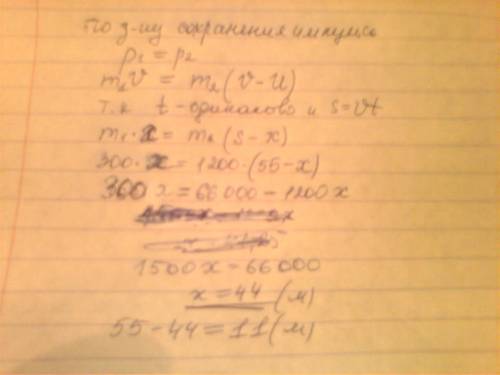 По з-му сохранения импульса
p₁ = p₂
m₁v = m₂(v-u)
т.к t - одинаково и s=vt
m₁·x = m₂(s-x)
300·x = 1200·(55-x)
300x = 66000-1200x
1500x = 66000
x = 44 (м)
55-44=11(м)